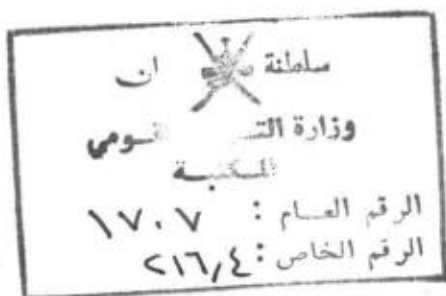 سلطنة ان
وزارة التـ ـقـومي
المكتبة
الرقم العـام : ١٧٠٧
الرقم الخاص : ٢١٦,٤